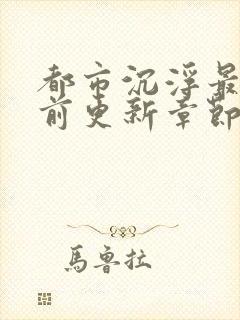 都市沉浮最
前更新章節
馬魯拉